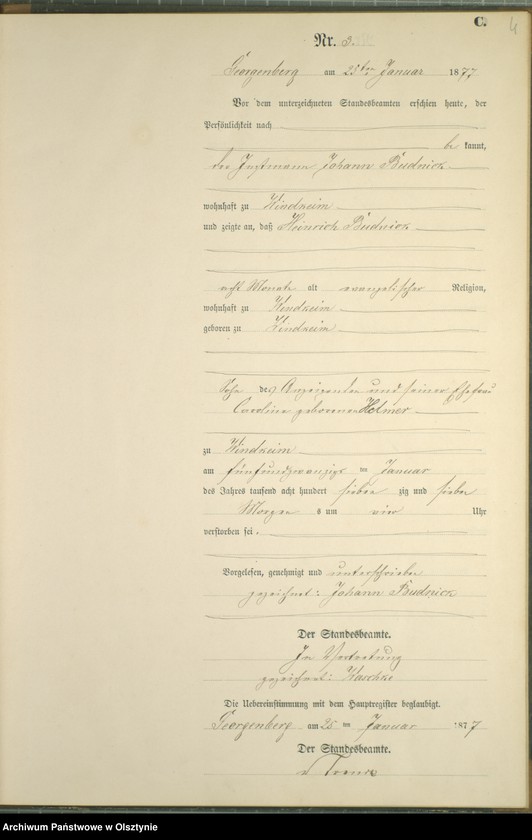 C.
4
Nr. 3.
Georgenberg am 25ten Januar 1877
Vor dem unterzeichneten Standesbeamten erschien heute, der
Persönlichkeit nach
be kannt,
der Instmann Johann Budnick
wohnhaft zu Windkeim
und zeigte an, daß Heinrich Budnick
acht Monate alt evangelischer Religion,
wohnhaft zu Windkeim
geboren zu Windkeim
Sohn des Anzeigenden und seiner Ehefrau
Caroline geborenen Holmer
zu Windkeim
am fünfundzwanzigs ten Januar
des Jahres tausend acht hundert sieben zig und sieben
Morgen s um vier Uhr
verstorben sei.
Vorgelesen, genehmigt und unterschrieben
gezeichnet: Johann Budnick
Der Standesbeamte.
In Vertretung
gezeichnet: Waschke
Die Uebereinstimmung mit dem Hauptregister beglaubigt.
Georgenberg am 25 ten Januar 1877
Der Standesbeamte.
Archiwum Państwowe w Olsztynie